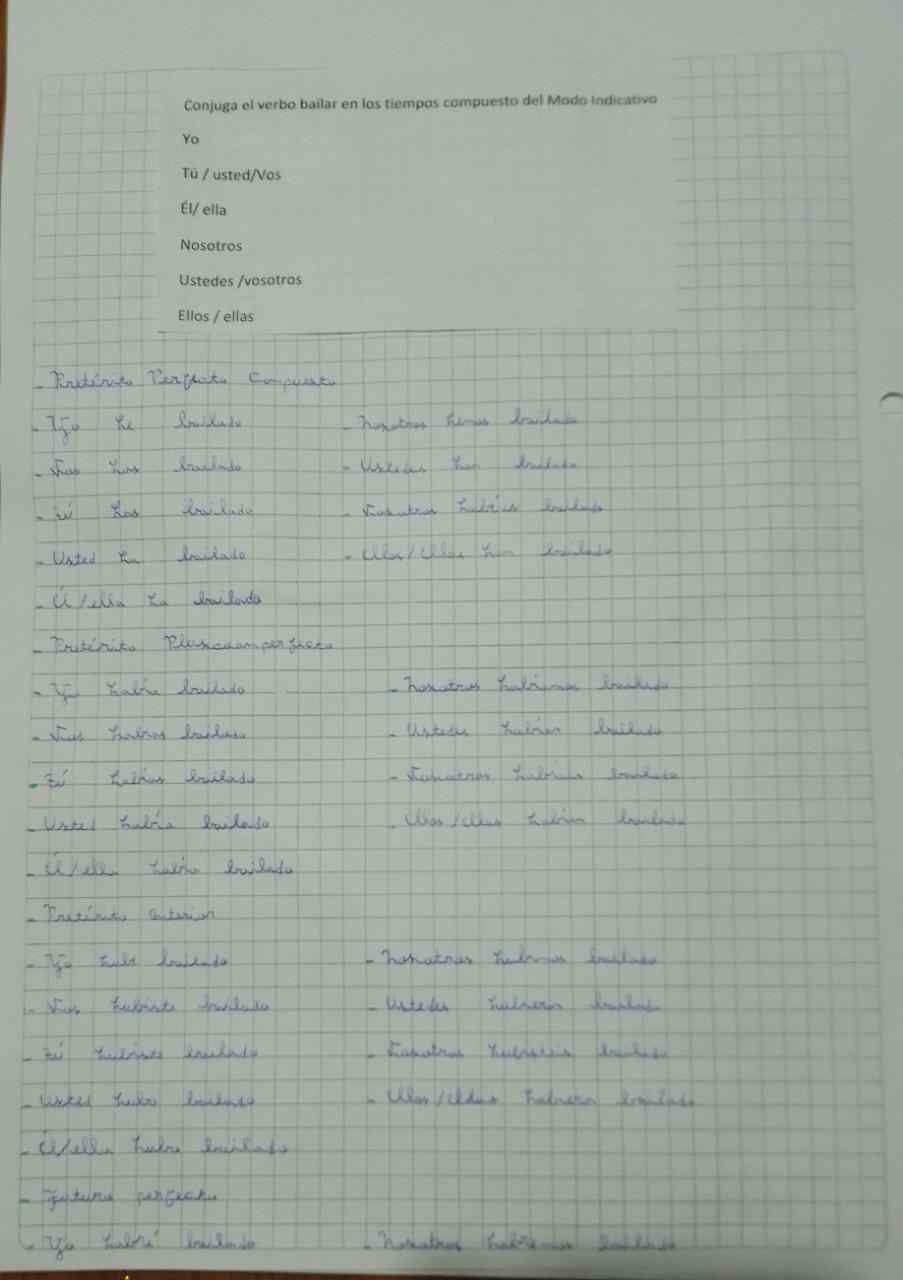 Conjuga el verbo bailar en los tiempos compuesto del Modo Indicativo
Yo
Tú / usted/Vos
Él/ ella
Nosotros
Ustedes /vosotros
Ellos / ellas
- Pretérito Perfecto Compuesto
- Yo he bailado - Nosotros hemos bailado
- Vos has bailado - Ustedes han bailado
- tú has bailado - Vosotros habéis bailado
- Usted ha bailado - Ellos/Ellas han bailado
- Él/ella ha bailado
- Pretérito Pluscuamperfecto
- Yo había bailado - Nosotros habíamos bailado
- Vos habías bailado - Ustedes habían bailado
- tú habías bailado - Vosotros habíais bailado
- Usted había bailado - Ellos/ellas habían bailado
- Él/ella había bailado
- Pretérito anterior
- Yo hube bailado - Nosotros hubimos bailado
- Vos hubiste bailado - Ustedes hubieron bailado
- tú hubiste bailado - Vosotros hubisteis bailado
- Usted hubo bailado - Ellos/Ellas hubieron bailado
- Él/ella hubo bailado
- Futuro perfecto
- Yo habré bailado - Nosotros habremos bailado